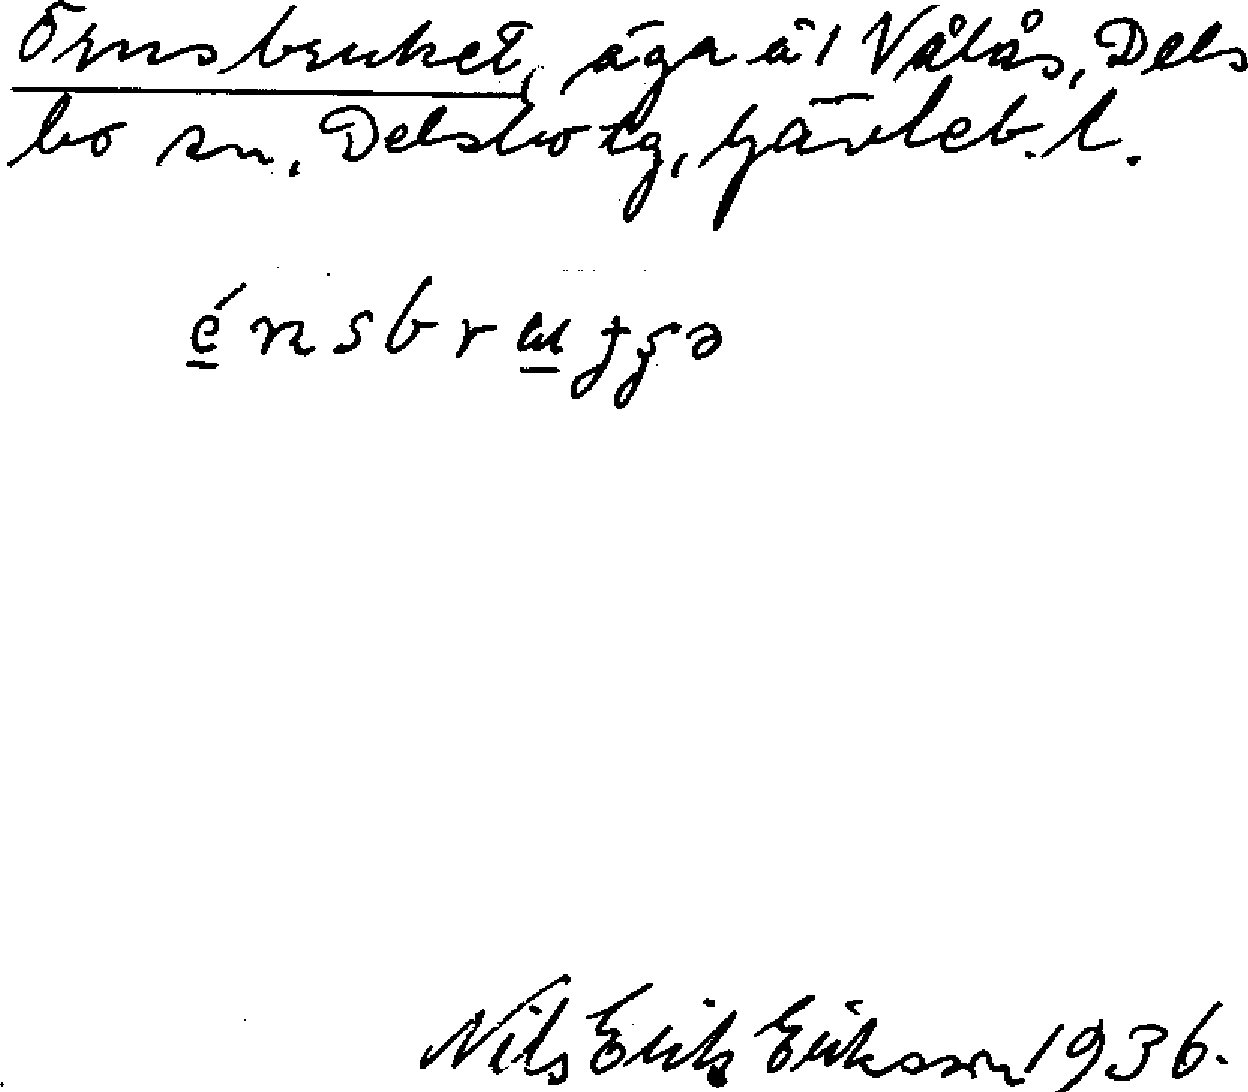 Örnsbruket, äga äl Vålås, Dels
bo sn, Delsbo tg, Gävleb. l.
Nils Erik Eriksson 1936.